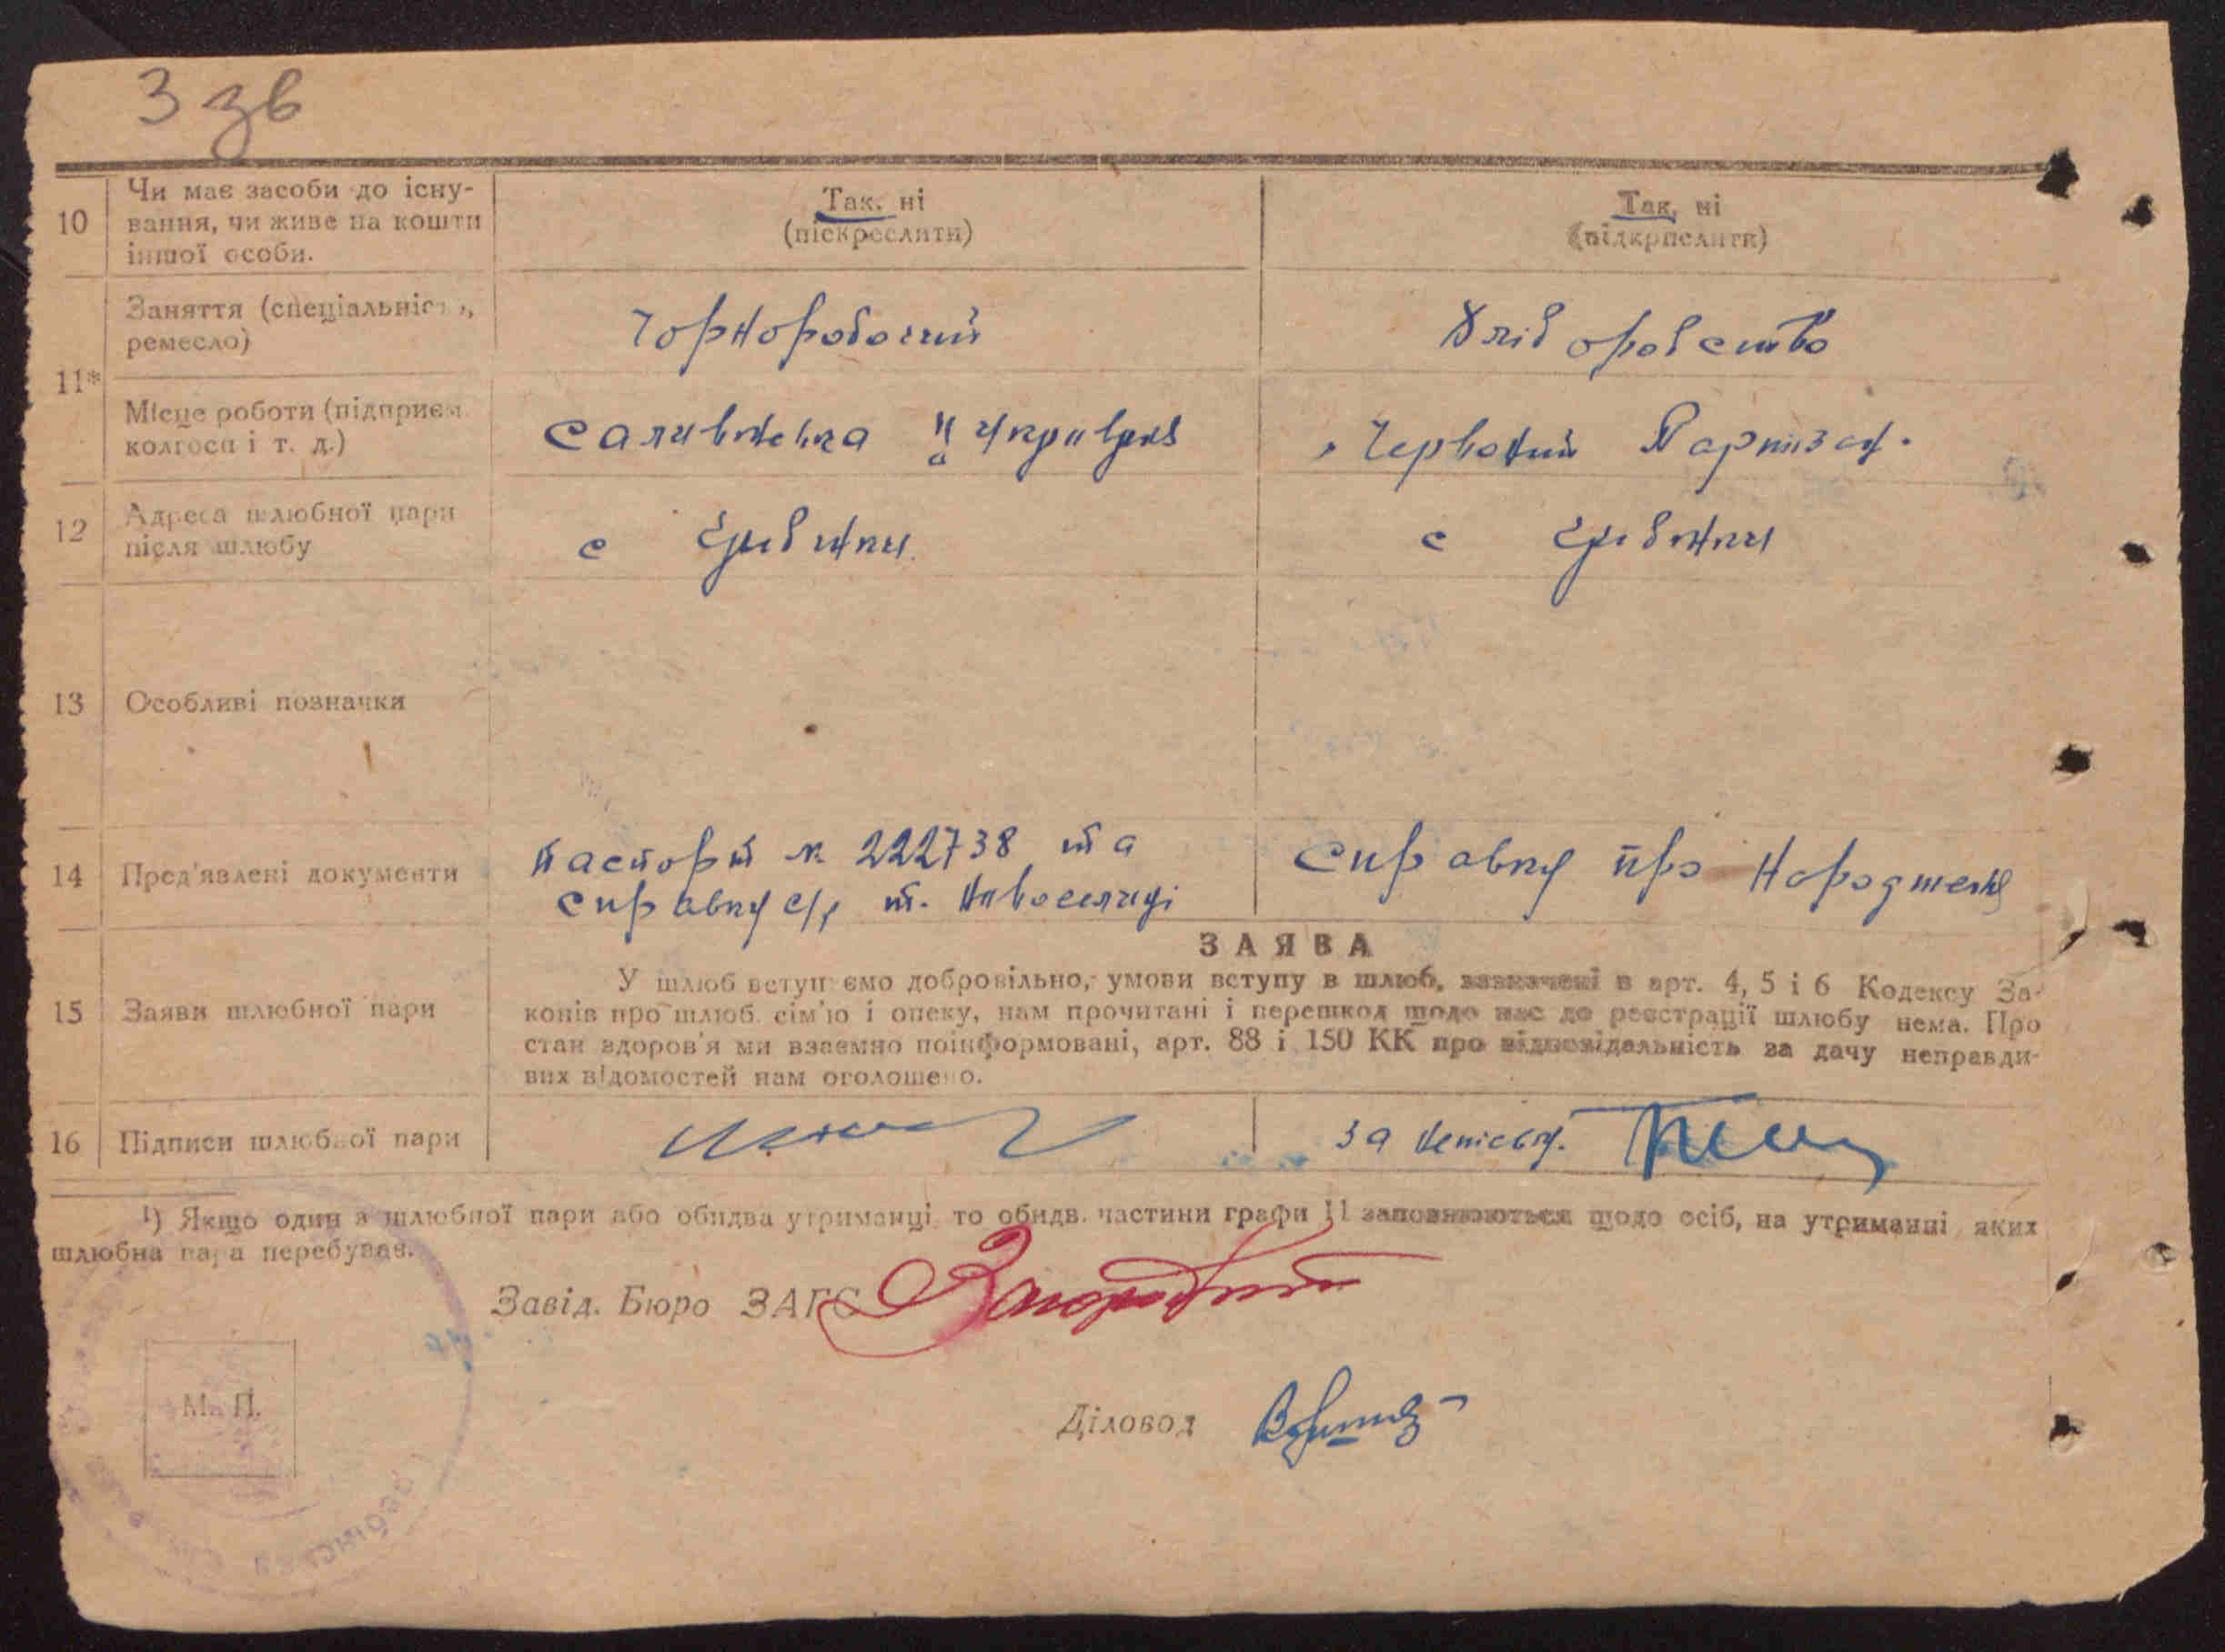 3 зв
10 Чи має засоби до існу-
вання, чи живе на кошти
іншої особи.
Так, ні
(піскреслити)
Так, ні
(підкрислити)
11* Заняття (спеціальність,
ремесло)
Чорноробочий
Хліборобство
Місце роботи (підприєм.
колгосп і т. д.)
Червоний Партизан.
12 Адреса шлюбної пари
після шлюбу
с
с
13 Особливі позначки
14 Пред'явлені документи
паспорт № 222738 та
справку с/р т.
справку про народження
15 Заяви шлюбної пари
ЗАЯВА
У шлюб вступаємо добровільно, умови вступу в шлюб, зазначені в арт. 4, 5 і 6 Кодексу За-
конів про шлюб. сім'ю і опеку, нам прочитані і перешкод щодо нас до реєстрації шлюбу нема. Про
стан здоров'я ми взаємно поінформовані, арт. 88 і 150 КК про відповідальність за дачу неправди-
вих відомостей нам оголошено.
16 Підписи шлюбної пари
за
¹) Якщо один з шлюбної пари або обидва утриманці, то обидв. частини графи 11 заповнюються щодо осіб, на утриманні яких
шлюбна пара перебуває.
Завід. Бюро ЗАГС
М. П.
Діловод